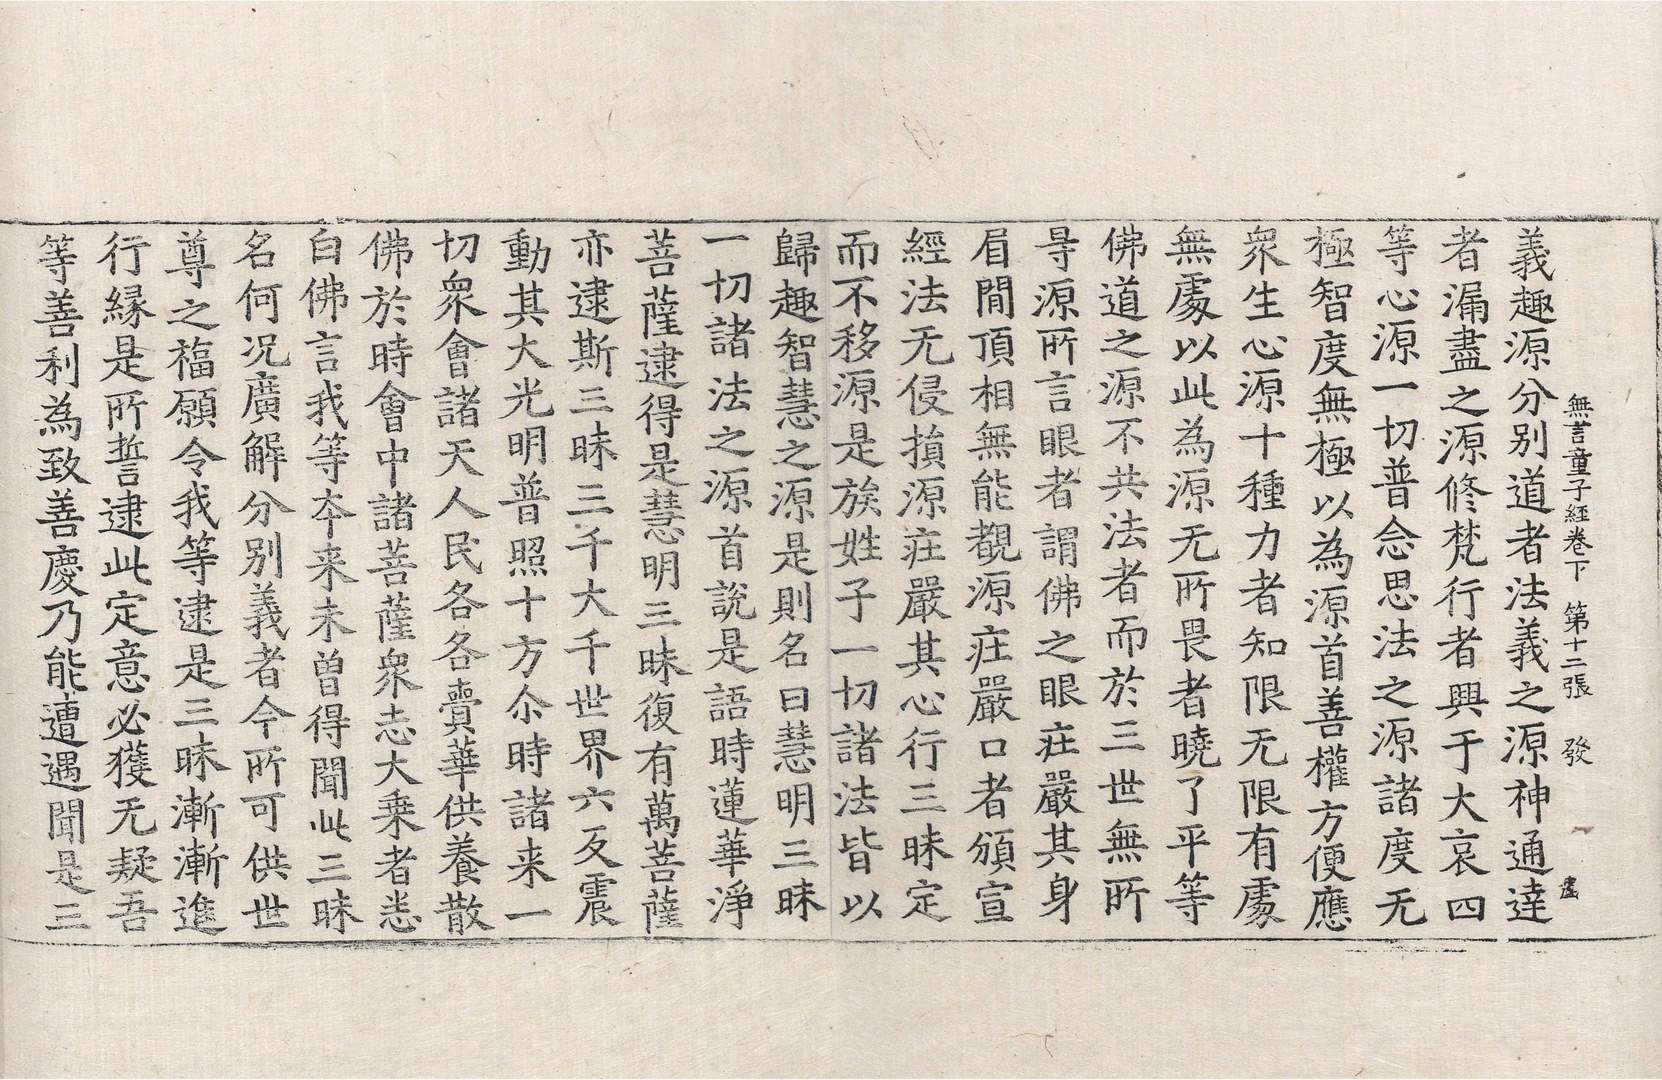 無言童子經卷下 第十二張 發
義趣源分別道者法義之源神通達
者漏盡之源修梵行者興于大哀四
等心源一切普念思法之源諸度无
極智度無極以為源首善權方便應
衆生心源十種力者知限无限有處
無處以此為源无所畏者曉了平等
佛道之源不共法者而於三世無所
㝵源所言眼者謂佛之眼莊嚴其身
眉閒頂相無能覩源莊嚴口者頒宣
經法无侵損源莊嚴其心行三昧定
而不移源是族姓子一切諸法皆以
歸趣智慧之源是則名曰慧明三昧
一切諸法之源首說是語時蓮華淨
菩薩逮得是慧明三昧復有萬菩薩
亦逮斯三昧三千大千世界六反震
動其大光明普照十方尒時諸来一
切衆會諸天人民各各賷華供養散
佛於時會中諸菩薩衆志大乗者悉
白佛言我等夲来未曽得聞此三昧
名何況廣解分別義者今所可供世
尊之福願令我等逮是三昧漸漸進
行縁是所誓逮此定意必獲无疑吾
等善利為致善慶乃能遭遇聞是三